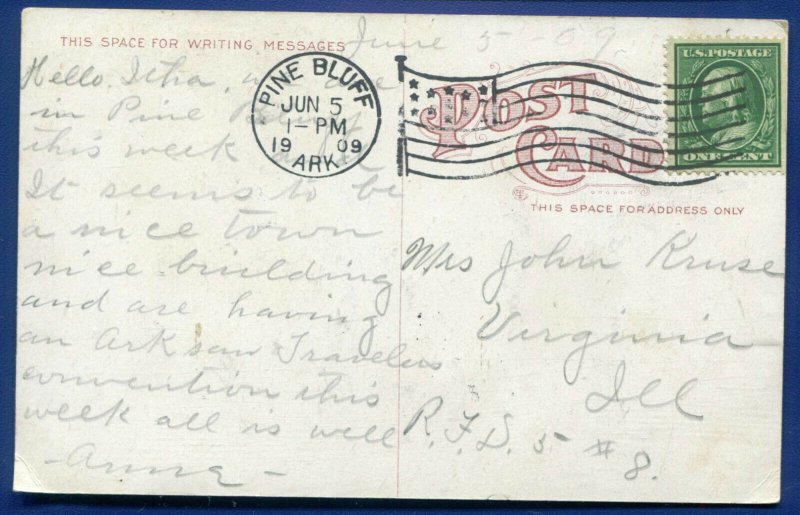 THIS SPACE FOR WRITING MESSAGES
June 5 - 09
Hello we are
in Pine Bluff
this week
It seems to be
a nice town
nice building
and are having
an Arksan Travelers
convention this
week all is well
- Anna -
PINE BLUFF
JUN 5
1-PM
19 09
ARK.
POST
CARD
THIS SPACE FOR ADDRESS ONLY
U.S. POSTAGE
ONE CENT
Mrs John Kruse
Virginia
Ill
R.F.D. 5 # 8.